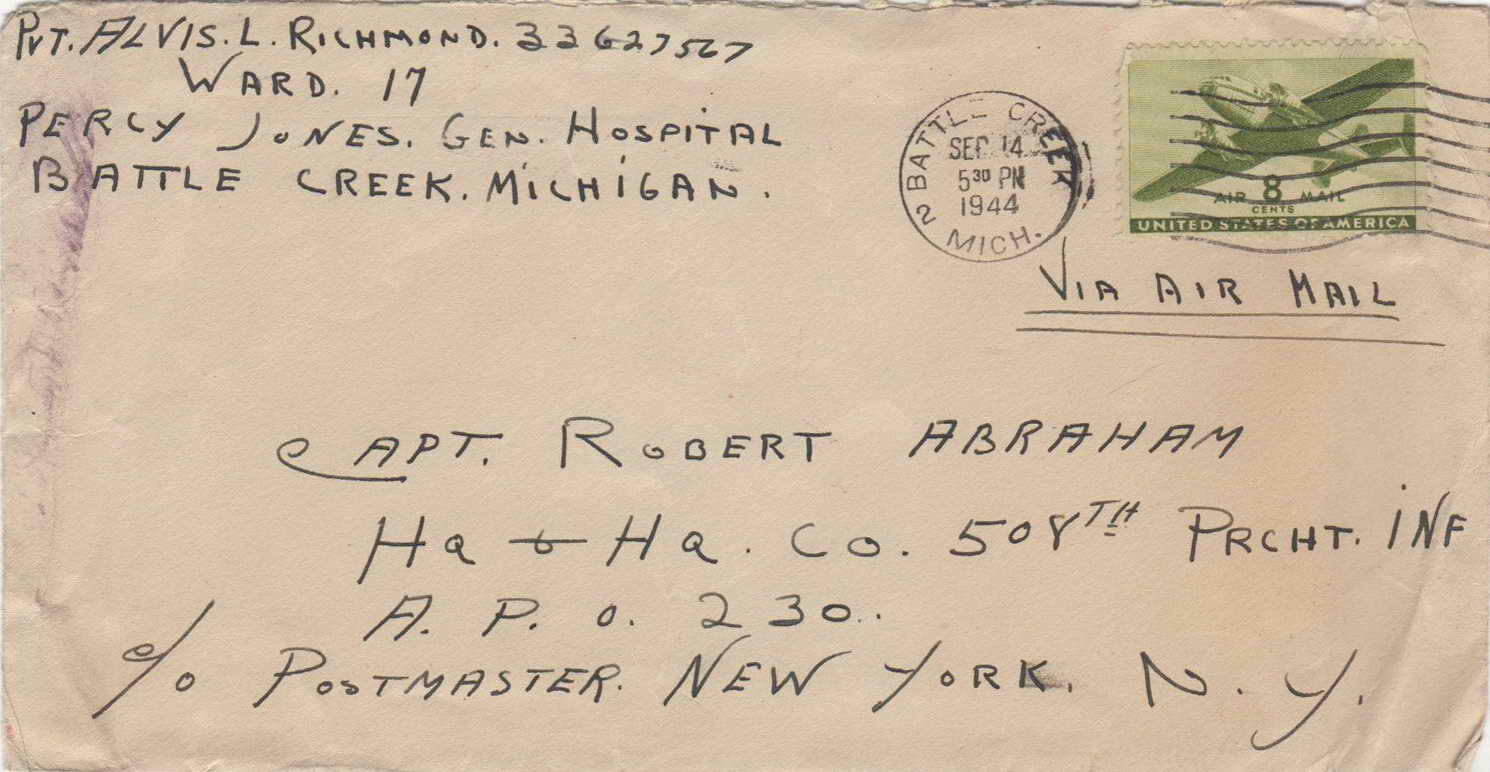 PVT. ALVIS. L. RICHMOND. 33627567
WARD. 17
PERCY JONES. GEN. HOSPITAL
BATTLE CREEK. MICHIGAN.
BATTLE CREEK
SEP 14
5 30 PM
1944
2 MICH.
AIR 8 MAIL
CENTS
UNITED STATES OF AMERICA
VIA AIR MAIL
CAPT. ROBERT ABRAHAM
HQ & HQ. CO. 508TH PRCHT. INF
A. P. O. 230.
c/o POSTMASTER. NEW YORK. N. Y.